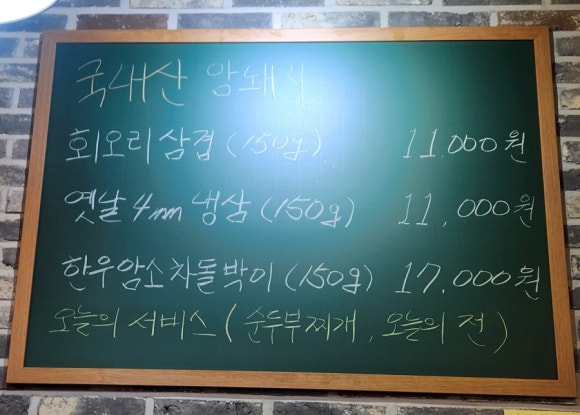 국내산 암돼지
회오리삼겹 (150g) 11.000원
옛날 4mm 냉삼 (150g) 11,000원
한우암소차돌박이 (150g) 17.000원
오늘의 서비스 ( 순두부찌개, 오늘의 전 )